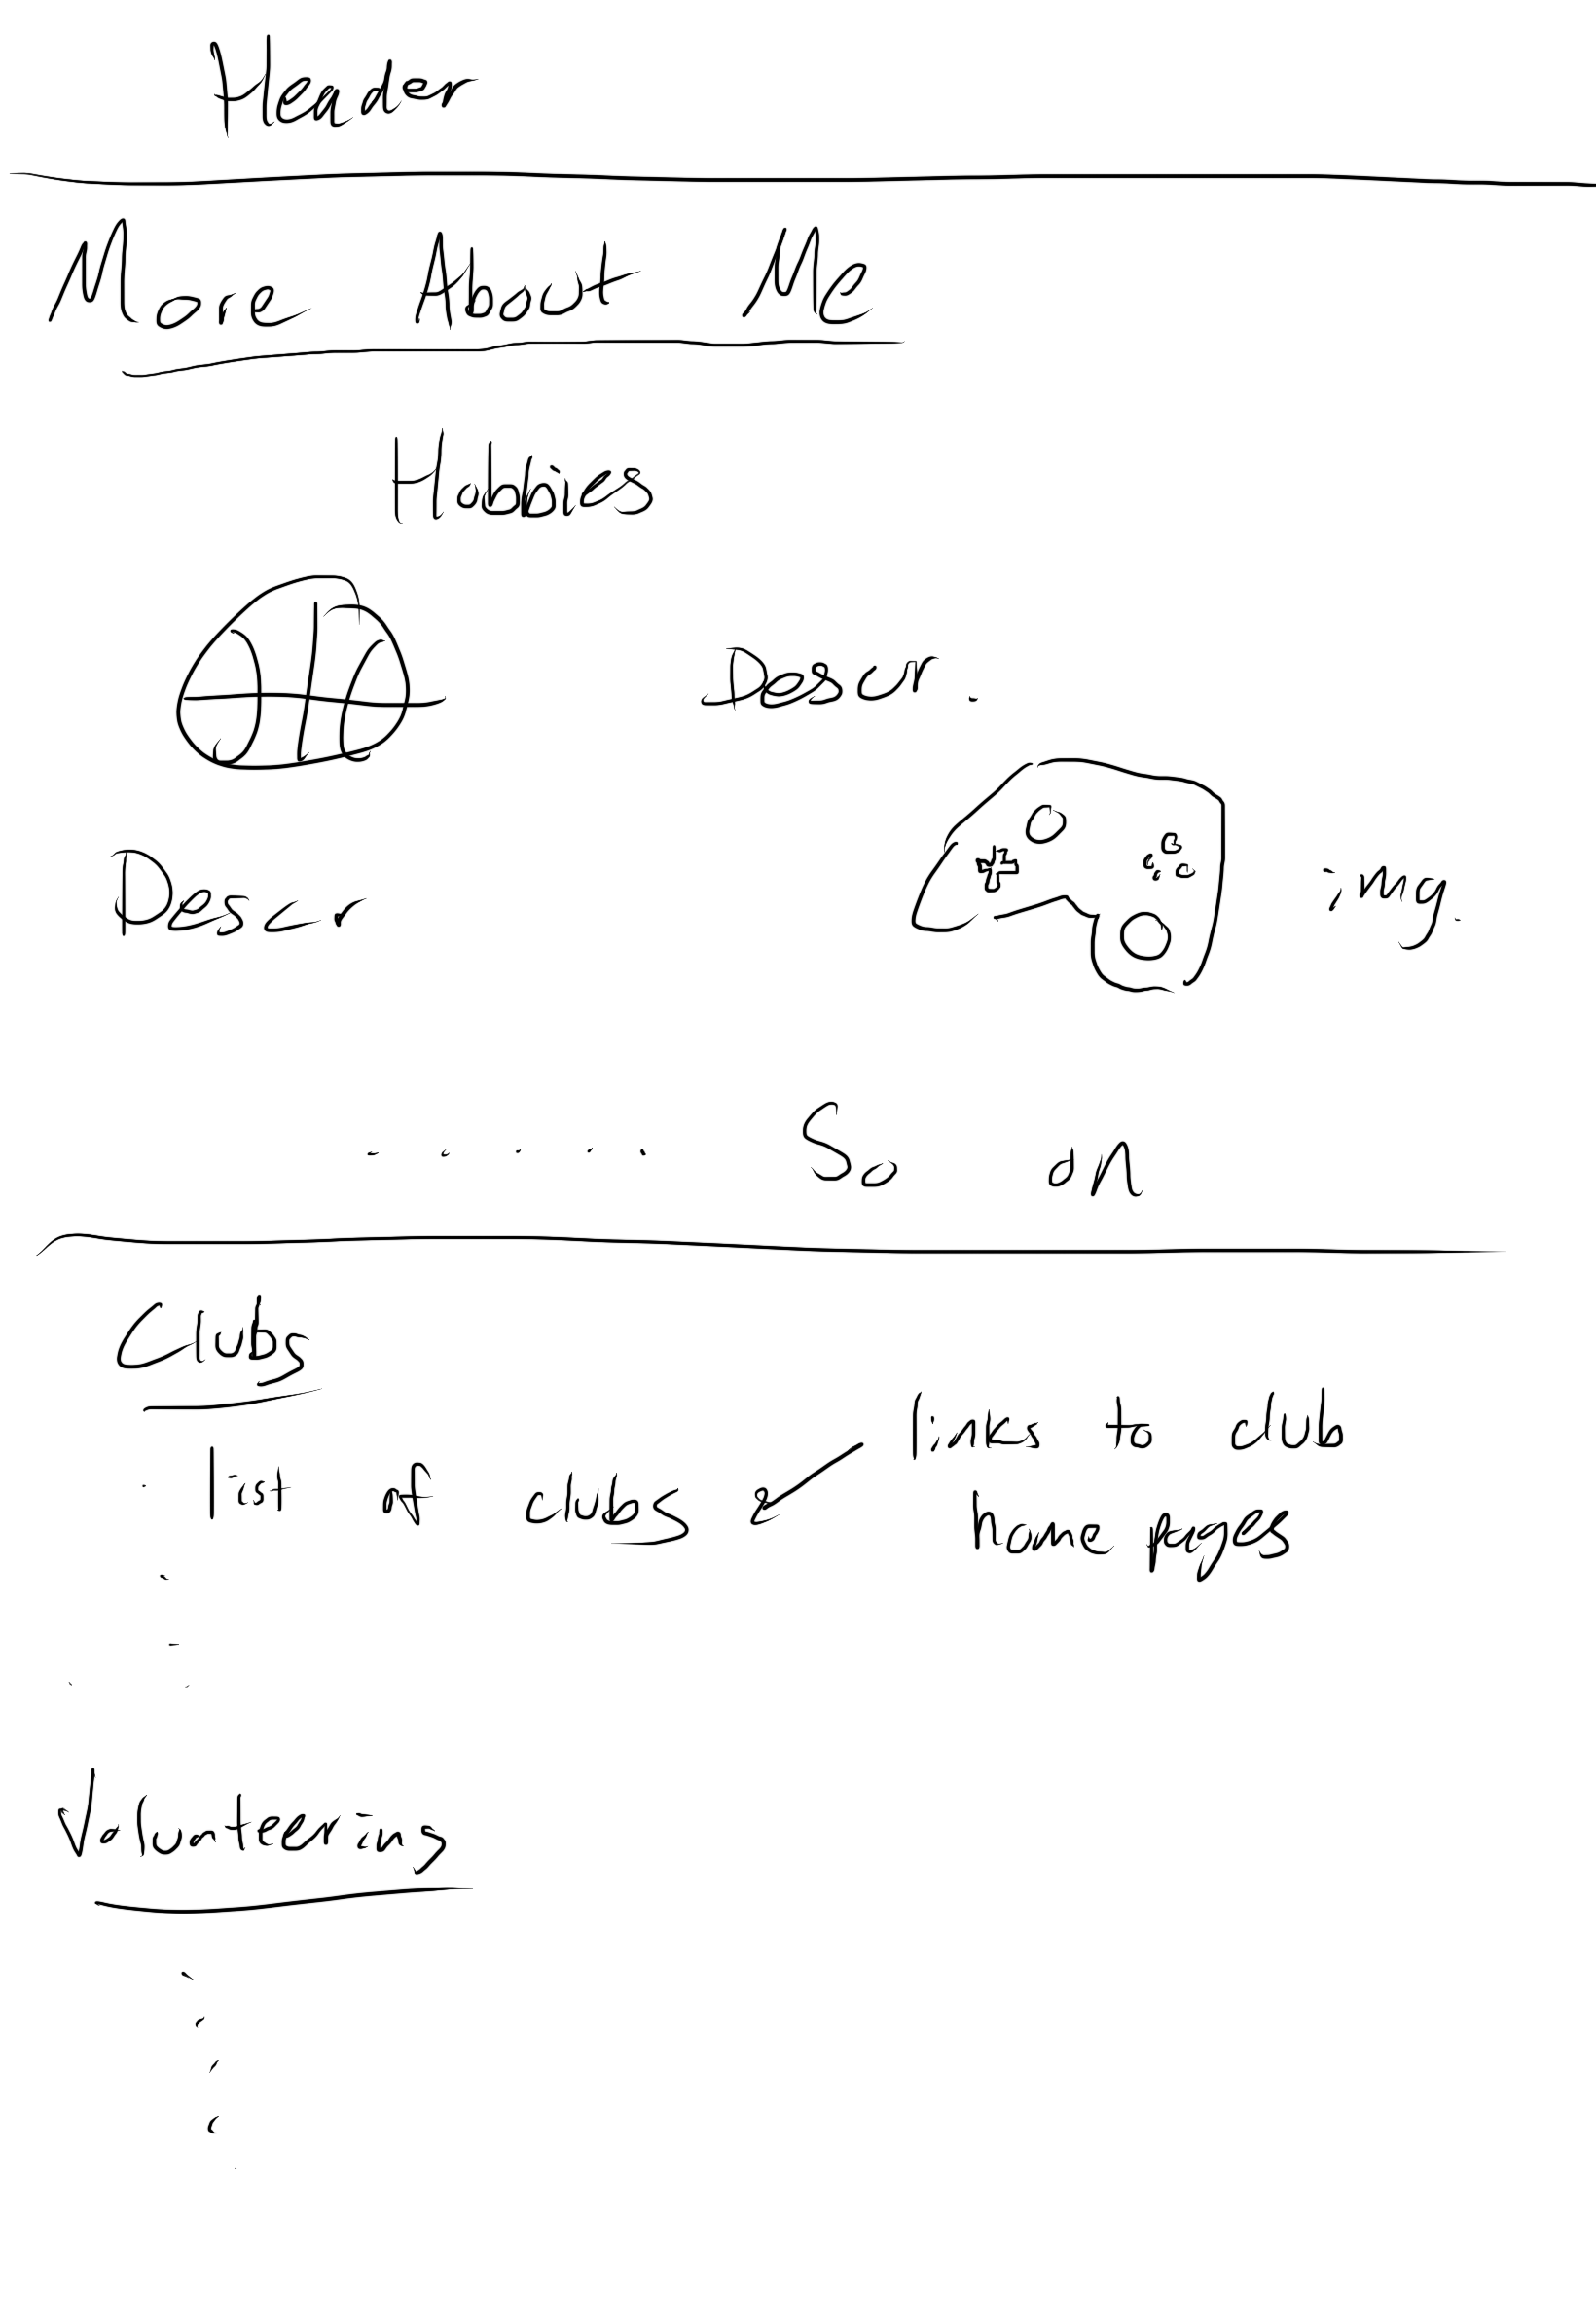 Header
More About Me
Hobbies
Descr.
Descr
img.
..... So on
Clubs
links to club
· list of clubs &
home pages
Volunteering